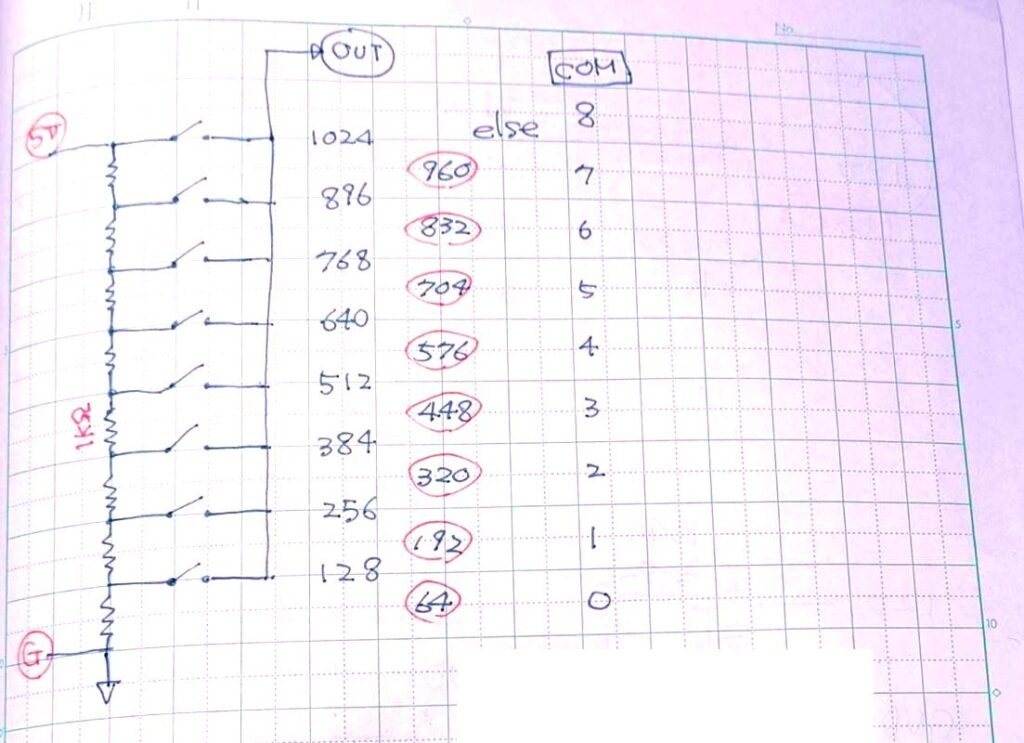 No.
OUT
COM
5V
1024
else
8
960
7
896
832
6
768
704
5
5
640
576
4
512
448
3
1KΩ
384
320
2
256
192
1
128
64
0
10
G
0